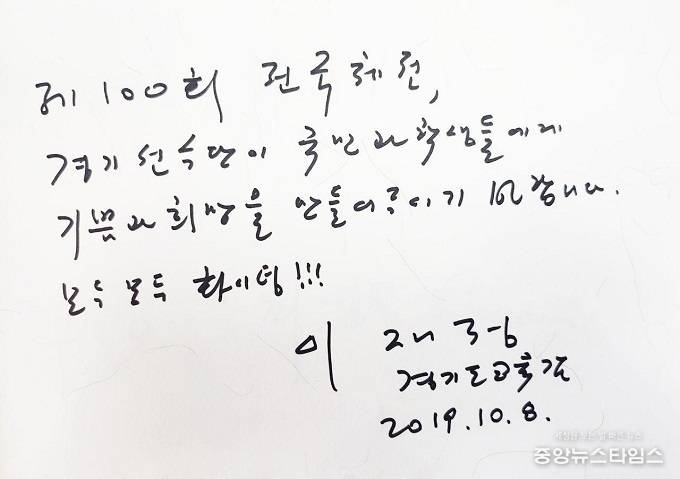 제100회 전국체전,
경기 선수단이 국민과 학생들에게
기쁨과 희망을 만들어주시기 바랍니다.
모두 모두 화이팅!!!
이 재정
경기도교육감
2019.10.8.
중앙뉴스타임스